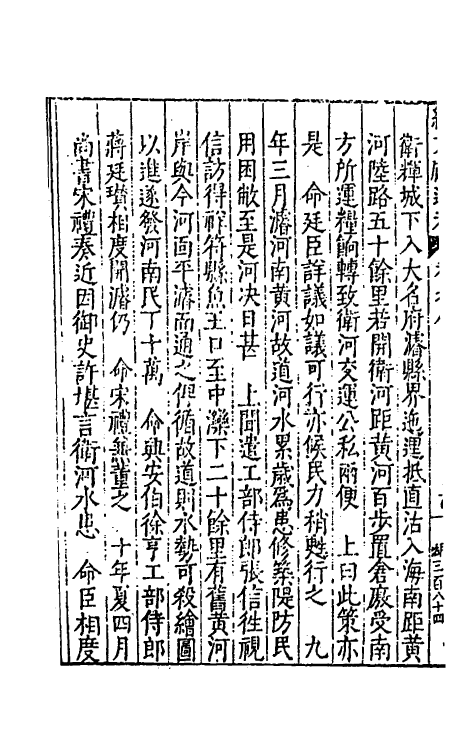 衛輝城下入大名府濬縣界迤邐抵直沽入海南距黃
河陸路五十餘里若開衛河距黃河百步置倉廒受南
方所運糧餉轉致衛河交運公私兩便　上曰此策亦
是　命廷臣詳議如議可行亦候民力稍甦行之　九
年三月濬河南黃河故道河水累歲為患修築隄防民
用困敝至是河决日甚　上聞遣工部侍郎張信徃視
信訪得祥符縣魚王口至中灤下二十餘里有舊黃河
岸與今河面平濬而通之俾循故道則水勢可殺繪圖
以進遂發河南民丁十萬　命興安伯徐亨工部侍郎
蔣廷瓚相度開濬仍　命宋禮兼董之　十年夏四月
尚書宋禮奏近因御史許堪言衛河水患　命臣相度